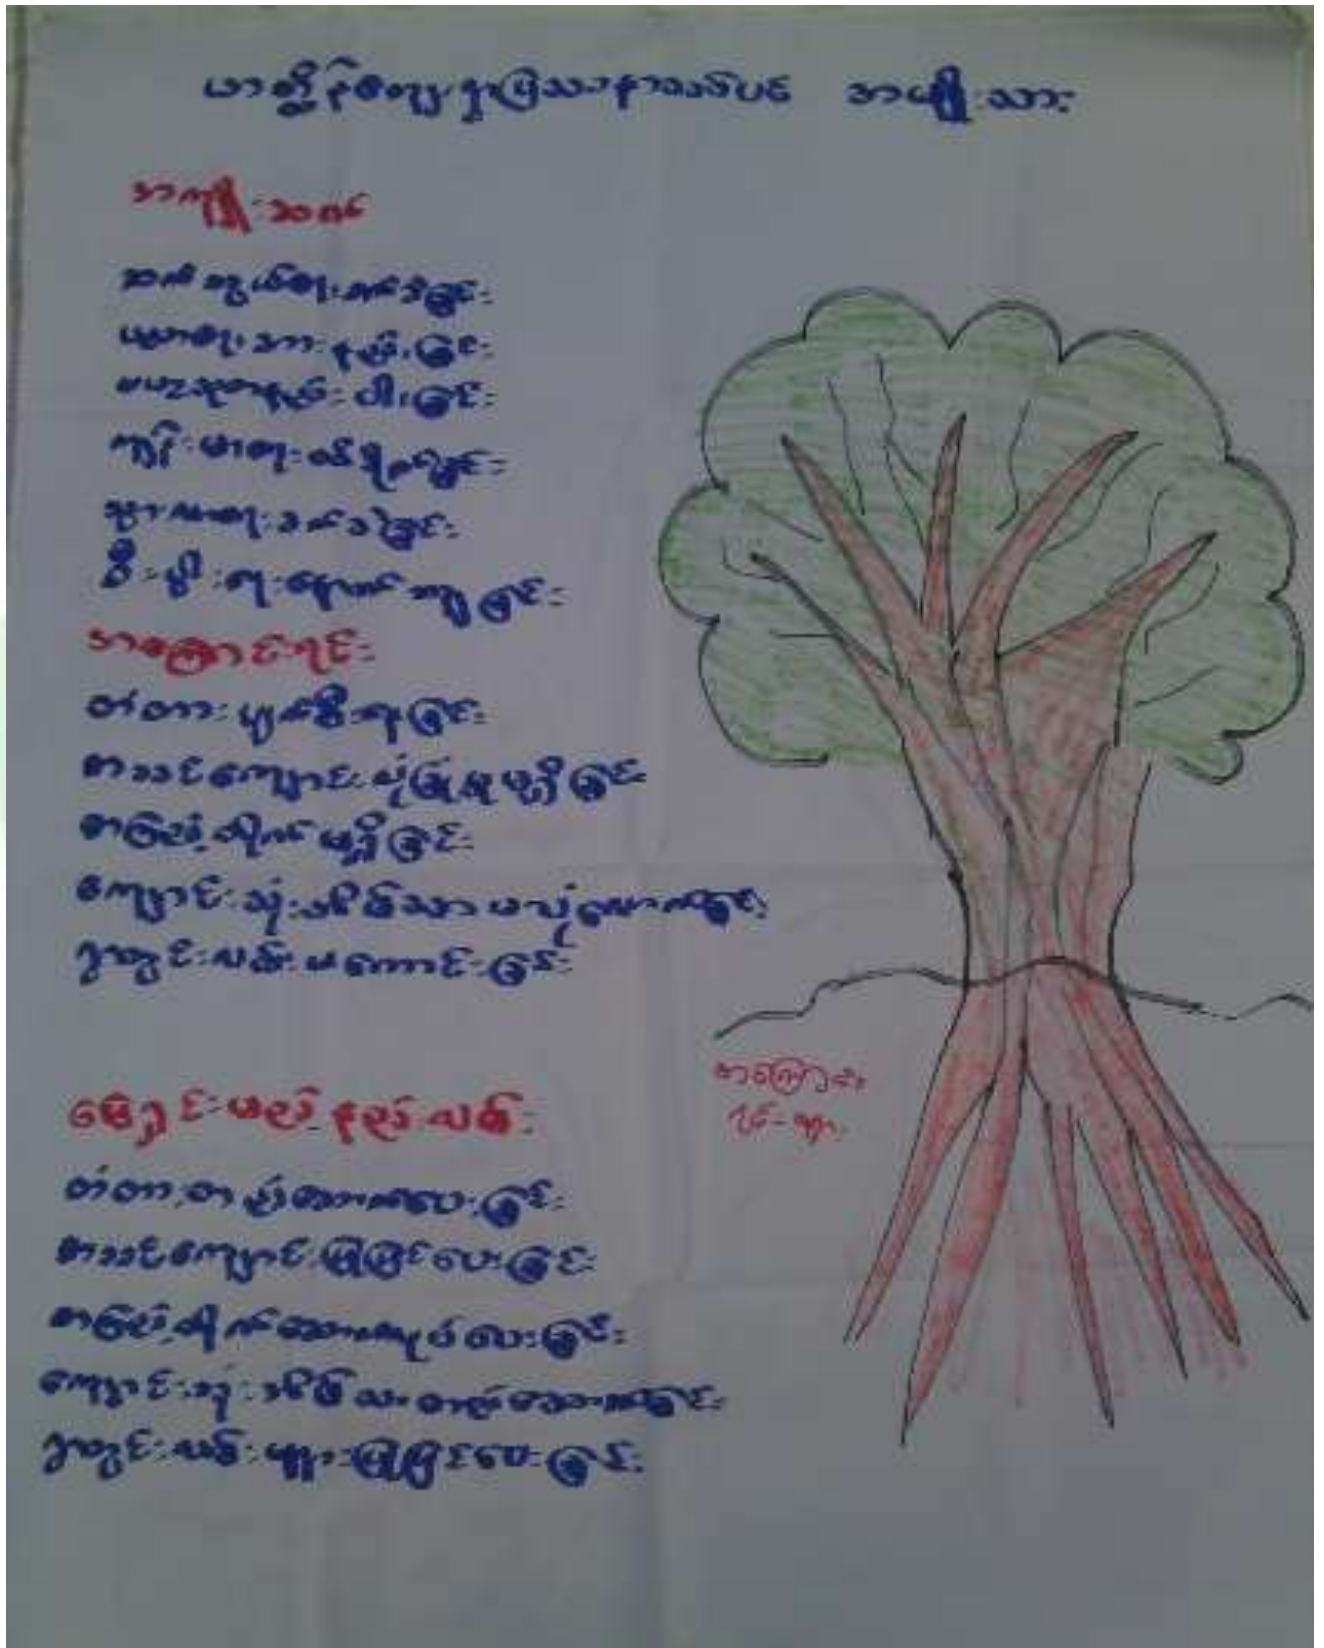 ယာတ္တိန်ကျေးရွာပြဿနာသစ်ပင် အမျိုးသား
အကျိုးဆက်
ဆက်သွယ်ရေးခက်ခဲခြင်း
ပညာရေးအားနည်းခြင်း
ဗဟုသုတနည်းပါးခြင်း
ကျန်းမာရေးထိခိုက်ခြင်း
သွားလာရေးခက်ခဲခြင်း
စီးပွါးရေးနောက်ကျခြင်း
အကြောင်းရင်း
တံတားပျက်စီးနေခြင်း
စာသင်ကျောင်းလုံခြုံမှုမရှိခြင်း
စာကြည့်တိုက်မရှိခြင်း
ကျောင်းသုံးအိမ်သာမလုံလောက်ခြင်း
ရွာတွင်းလမ်းမကောင်းခြင်း
ဖြေရှင်းမည့်နည်းလမ်း
တံတားတည်ဆောက်ပေးခြင်း
စာသင်ကျောင်းပြုပြင်ပေးခြင်း
စာကြည့်တိုက်ဆောက်လုပ်ပေးခြင်း
ကျောင်းသုံးအိမ်သာတည်ဆောက်ခြင်း
ရွာတွင်းလမ်းများပြုပြင်ပေးခြင်း
အကြောင်း
ရင်း